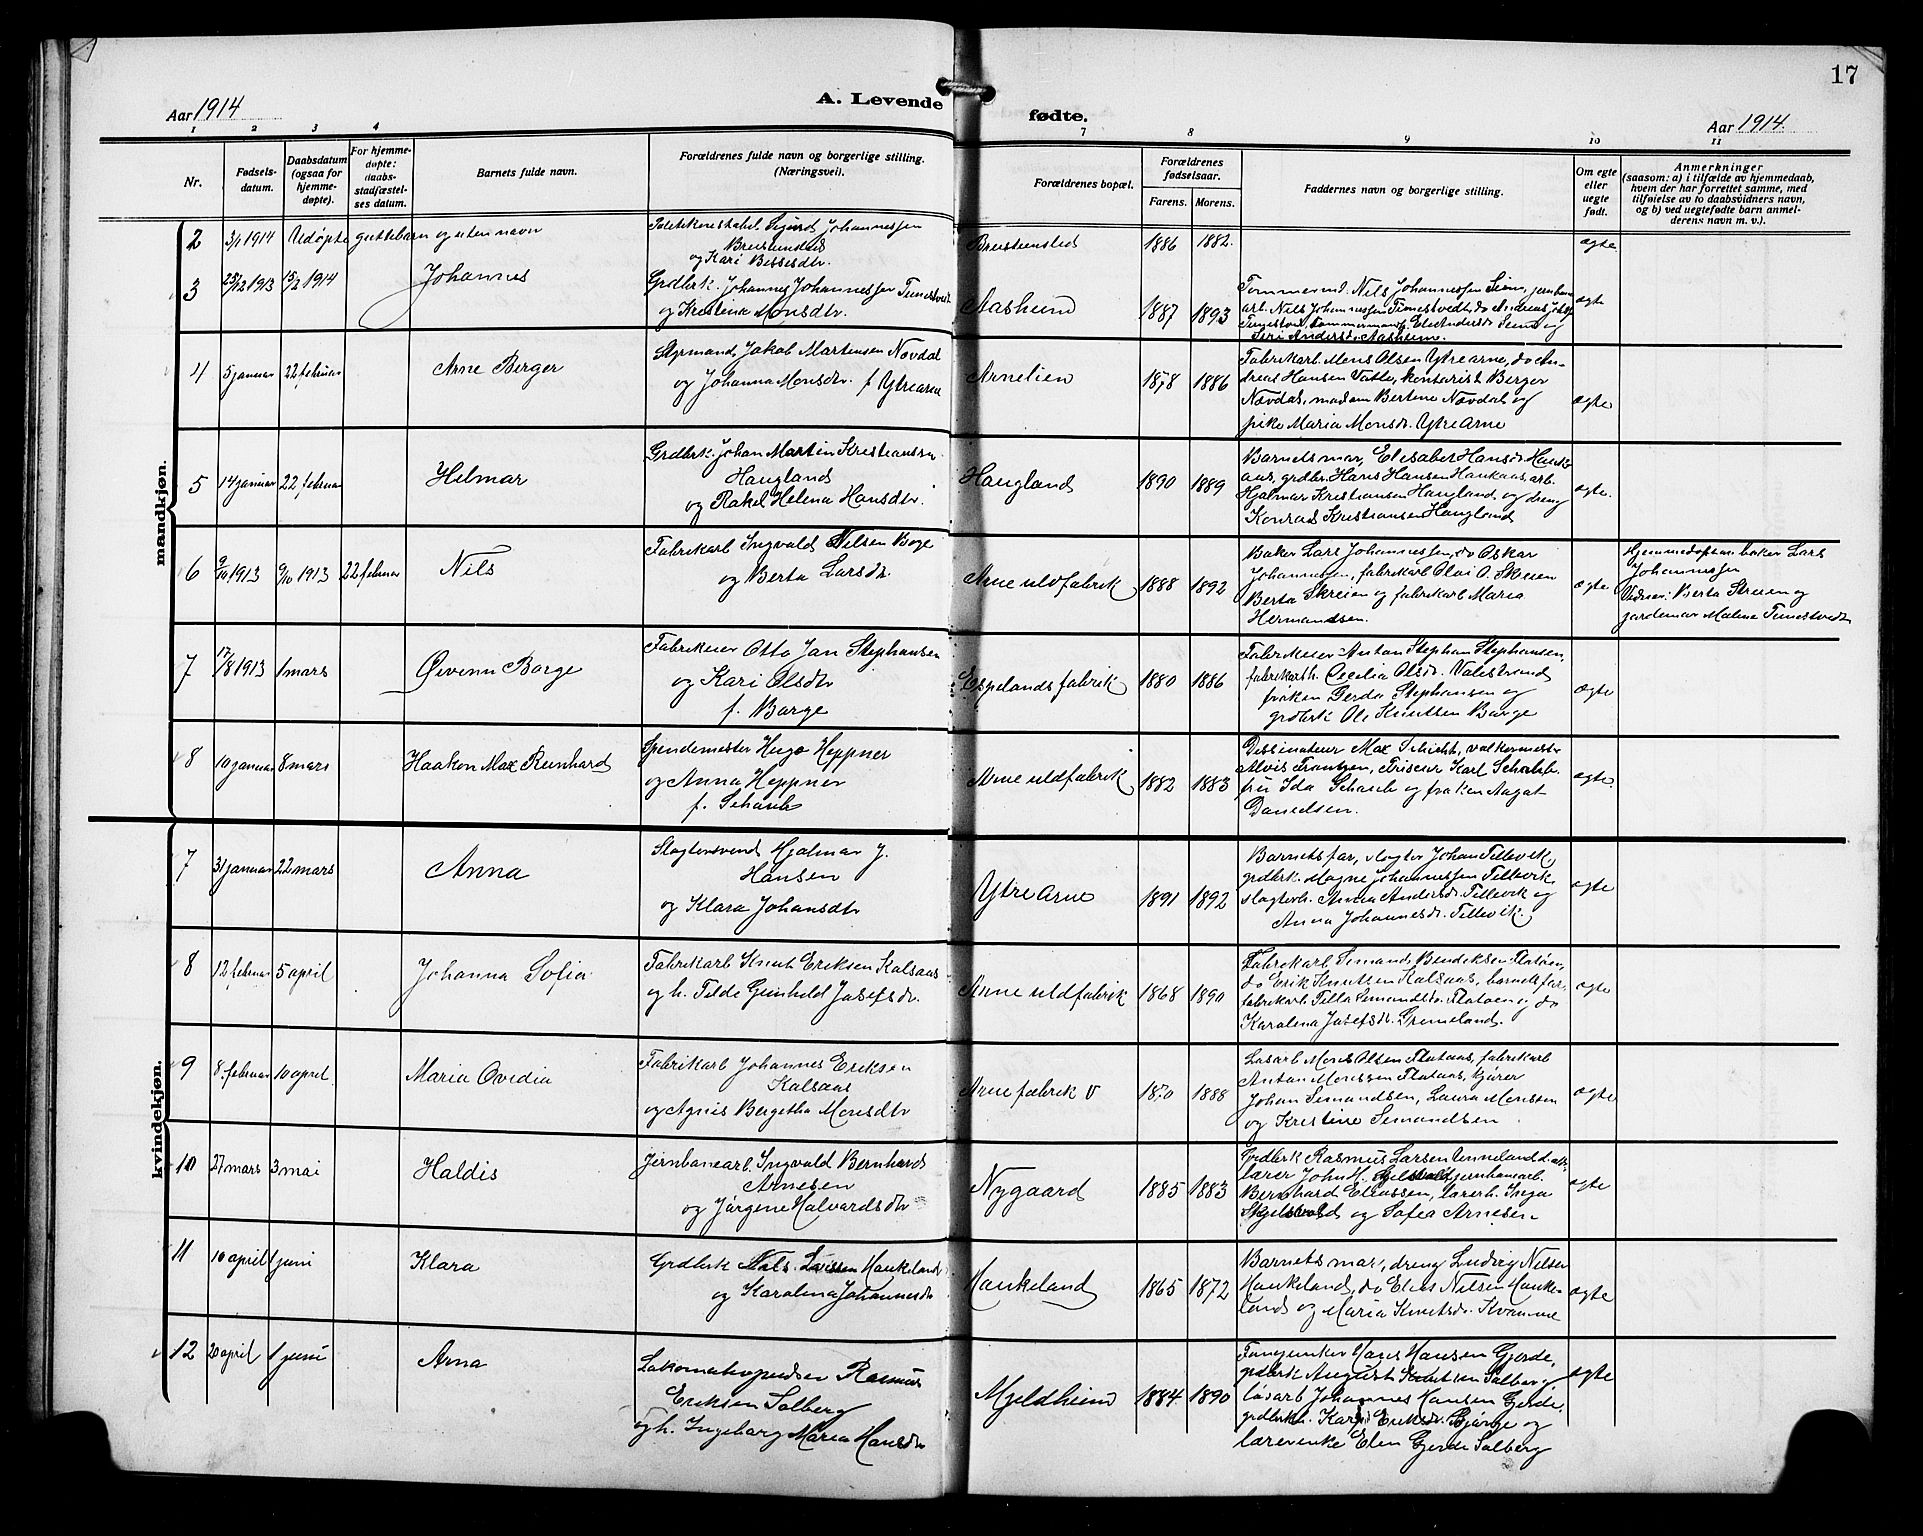 17
Aar 1914
A. Levende
fødte.
Aar 1914.
1 2 3 4 7 8 9 10 11
Nr.
Fødsels-
datum.
Daabsdatum
(ogsaa for
hjemme-
døpte).
For hjemme-
døpte:
daabs-
stadfæstel-
ses datum.
Barnets fulde navn.
Forældrenes fulde navn og borgerlige stilling.
(Næringsvei).
Forældrenes bopæl.
Forældrenes
fødselsaar.
Farens. Morens.
Faddernes navn og borgerlige stilling.
Om egte
eller
uegte
født.
Anmerkninger
(saasom: a) i tilfælde av hjemmedaab,
hvem der har forrettet samme, med
tilføielse av to daabsvidners navn,
og b) ved uegtefødte barn anmel-
derens navn m. v.).
mandkjøn.
2 3/1 1914 Udøpte guttebarn og uten navn
Sigurd Johannessen
og Kari
1886 1882. ægte.
3 25/12 1913 15/2 1914 Johannes
Grdbrk. Johannes Johannessen Temestvedt
og Kristine Monsdtr.
Aasheim 1887 1893
Nils Johannessen
arb. Nils Johannessen
ægte
4 5 januar 22 februar Arne Berger
Styrmand Jakob Martensen Novdal
og Johanna Monsdtr. f Ytrearne
Arnelien 1878 1886
Fabrikarb. Mons Olsen Ytre arne, do An-
dreas Hansen Vatle, kontorist Berger
Novdal, madam Bertine Novdal og
pike Maria Monsdr. Ytre Arne
ægte
5 14 januar 22 februar Hilmar
Grdbrk. Johan Martin Kristiansen
Haugland
og Rakel Helena Hansdtr.
Haugland 1890 1889
Barnets mor, Elisabet Hansdr Hauk-
aas, grdbr. Hans Hansen Haukaas, arb.
Hjalmar Kristiansen Haugland og dreng
Konrad Kristiansen Haugland
ægte.
6 9/10 1913 22 februar Nils
Fabrikarb Ingvald Nilsen Boge
og Berta Larsdtr.
Arne uldfabrik 1888 1892
Baker Lars Johannessen, do Oskar
Johannessen, fabrikarb Olai O. Skreien
Berta Skreien og fabrikarb Maria
Hermandsen.
ægte
Hjemmedøpt av baker Lars
Johannessen
Vidner: Berta Skreien og
jordemor Malene Temestvedt
7 17/8 1913 1 mars Øivenn Borge
Fabrikeier Otto Jan Stephansen
og Kari Olsdtr
f. Borge
Espelands fabrik 1880 1886
Fabrikeier Anton Stephan Stephansen,
fabrikarb. Cecilia Olsdr. Valestrand
frøken Gerda Stephansen og
grdbrk Ole Knutsen Borge
ægte
8 10 januar 8 mars Haakon Max Reinhard
Spindemester Hugo Heppner
og Anna Heppner
f. Schaub
Arne uldfabrik 1882 1883
Dessinateur Max Schicht, valkermester
Alvis Frantzen, Friseur Karl Schaub
fru Ida Schaub og frøken Aagot
Danielsen.
ægte.
kvindekjøn.
7 31 januar 22 mars Anna
Slagtersvend Hjalmar J.
Hansen
og Klara Johansdtr
Ytre Arne 1891 1892
Barnets far, slagter Johan Tellevik,
grdbrk. Magne Johannessen Tellevik,
slagterh. Anna Andersdr. Tellevik og
Anna Johannesdr. Tellevik.
ægte
8 12 februar 5 april Johanna Sofia
Fabrikarb Knut Eriksen Kalsaas
og h. Tilde Gunhild Josefsdr.
Arne uldfabrik 1868 1890
Fabrikarb Simund Bendiksen Flatøen,
do Erik Knutsen Kalsaas, barnets far,
fabrikarb. Tilla Simundsdr. Flatøen og do
Karolina Josefsdr. Grimeland.
ægte
9 8. februar 10 april. Maria Ovedia
Fabrikarb Johannes Eriksen
Kalsaas
og Agnes Bergetha Monsdtr
Arne fabrik V 1888
Løsarb Mons Olsen Flataas, fabrikarb
Anton Monssen Flataas, kjører
Johan Simundsen, Laura Monsen
og Kristine Simundsen.
ægte
10 27 mars 3 mai Haldis
Jernbanearb. Ingvald Bernhard
Arnesen
og Jørgene Halvardsdtr
Nygaard 1885 1883
Grdbrk Rasmus Larsen Unneland,
lærer John H. jernbanearb.
Bernhard Eliassen, lærerh. Inga
og Sofia Arnesen
ægte
11 10 april 1 juni Klara
Grdbrk Nils Haukeland
og Karolina Johannesdtr
Haukeland 1865 1872
Barnets mor, dreng Ludvig Nilsen
Haukeland, do Elias Nilsen Hauke-
land og Maria Knutsdr. Kvamme
ægte
12 20 april 1 juni Arna
Lokomotivpudser Rasmus
Eriksen Solberg
og h. Ingeborg Maria Hansdtr
Mjeldheim 1884 1890
Hans Hansen Gjerde,
grdbrk August Solberg,
løsarb Johannes Hansen Gjerde,
grdbrkh. Kari Eriksdr. Bjørge og
lærerenke Elen Gjerde Solberg
ægte